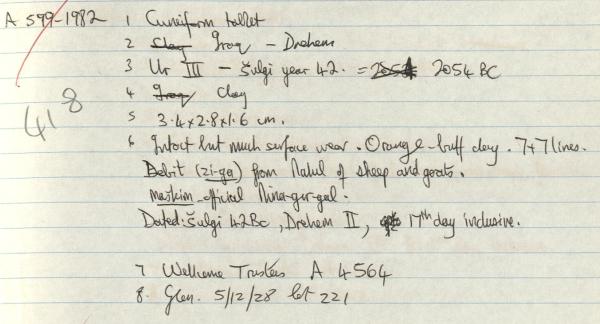 A 599-1982 1 Cuneiform tablet
2 Clay Iraq - Drehem
3 Ur III - Šulgi year 42. = 2052 2054 BC
4 Iraq Clay
418
5 3.4 x 2.8 x 1.6 cm.
6 Intact but much surface wear. Orange-buff clay. 7+7 lines.
Debit (zi-ga) from Nalul of sheep and goats.
maškim-official
Dated: Šulgi 42BC, Drehem II, 17th day inclusive.
7 Wellcome Trustees A 4564
8. Glen. 5/12/28 lot 221